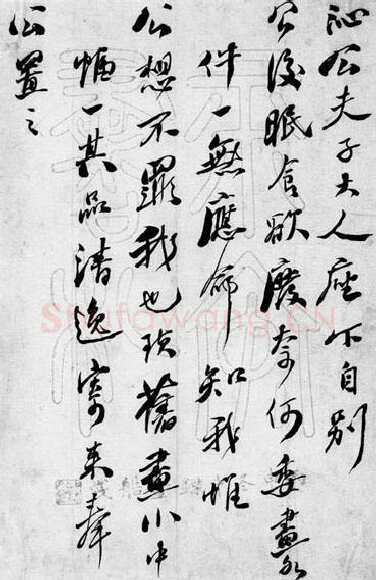 沁公夫子大人座下自别
公後眠食欲廢奈何委畫
件一無應命知我惟
公想不罪我也舊畫小中
幅一其品清逸寄来奉
公置之
Shufawang.CN